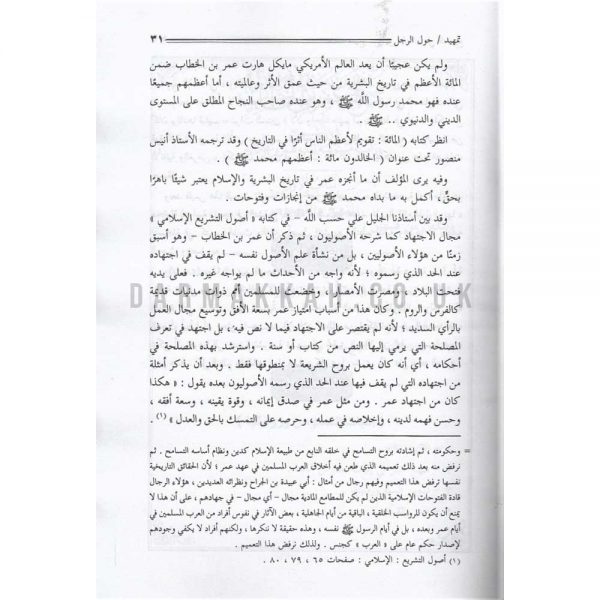 تمهيد / حول الرجل ٣١
ولم يكن عجيبًا أن يعد العالم الأمريكي مايكل هارت عمر بن الخطاب ضمن
المائة الأعظم في تاريخ البشرية من حيث عمق الأثر وعالميته ، أما أعظمهم جميعًا
عنده فهو محمد رسول اللَّه ﷺ ، وهو عنده صاحب النجاح المطلق على المستوى
الديني والدنيوي .. ﷺ ..
انظر كتابه ( المائة : تقويم لأعظم الناس أثرًا في التاريخ ) وقد ترجمه الأستاذ أنيس
منصور تحت عنوان ( الخالدون مائة : أعظمهم محمد ﷺ ) .
وفيه يرى المؤلف أن ما أنجزه عمر في تاريخ البشرية والإسلام يعتبر شيئًا باهرًا
بحقٍّ، أكمل به ما بداه محمد ﷺ من إنجازات وفتوحات .
وقد بين أستاذنا الجليل علي حسب اللَّه – في كتابه « أصول التشريع الإسلامي »
مجال الاجتهاد كما شرحه الأصوليون ، ثم ذكر أن عمر بن الخطاب – وهو أسبق
زمنًا من هؤلاء الأصوليين ، بل من نشأة علم الأصول نفسه – لم يقف في اجتهاده
عند الحد الذي رسموه ؛ لأنه واجه من الأحداث ما لم يواجه غيره . فعلى يديه
فتحت البلاد ، ومصرت الأمصار ، وخضعت للمسلمين أم ذوات مدنيات قديمة
كالفرس والروم . وكان هذا من أسباب امتياز عمر بسعة الأفق وتوسيع مجال العمل
بالرأي السديد ؛ لأنه لم يقتصر على الاجتهاد فيما لا نص فيه ، بل اجتهد في تعرف
المصلحة التي يرمي إليها النص من كتاب أو سنة . واسترشد بهذه المصلحة في
أحكامه ، أي أنه كان يعمل بروح الشريعة لا بمنطوقها فقط . وبعد أن يذكر أمثلة
من اجتهاده التي لم يقف فيها عند الحد الذي رسمه الأصوليون بعده يقول : « هكذا
كان من اجتهاد عمر . ومن مثل عمر في صدق إيمانه ، وقوة يقينه ، وسعة أفقه ،
وحسن فهمه لدينه ، وإخلاصه في عمله ، وحرصه على التمسك بالحق والعدل » (١) .
= وحكومته ، ثم إشادته بروح التسامح في خلقه النابع من طبيعة الإسلام كدين ونظام أساسه التسامح . ثم
نرفض منه بعد ذلك تعميمه الذي طعن فيه أخلاق العرب المسلمين في عهد عمر ؛ لأن الحقائق التاريخية
نفسها ترفض هذا التعميم وفيهم رجال من أمثال : أبي عبيدة بن الجراح ونظرائه العديدين ، هؤلاء الرجال
قادة الفتوحات الإسلامية الذين لم يكن للمطامع المادية مجال – أي مجال – في جهادهم ، على أن هذا لا
يمنع أن يكون للرواسب الخلقية ، الباقية من أيام الجاهلية ، بعض الآثار في نفوس أفراد من العرب المسلمين في
أيام عمر وبعده ، بل في أيام الرسول ﷺ نفسه ، وهذه حقيقة لا ننكرها ، ولكنهم أفراد لا يكفي وجودهم
لإصدار حكم عام على « العرب » كجنس . ولذلك نرفض هذا التعميم .
(١) أصول التشريع : الإسلامي : صفحات ٦٥ ، ٧٩ ، ٨٠ .
DARMAKKAH.CO.UK